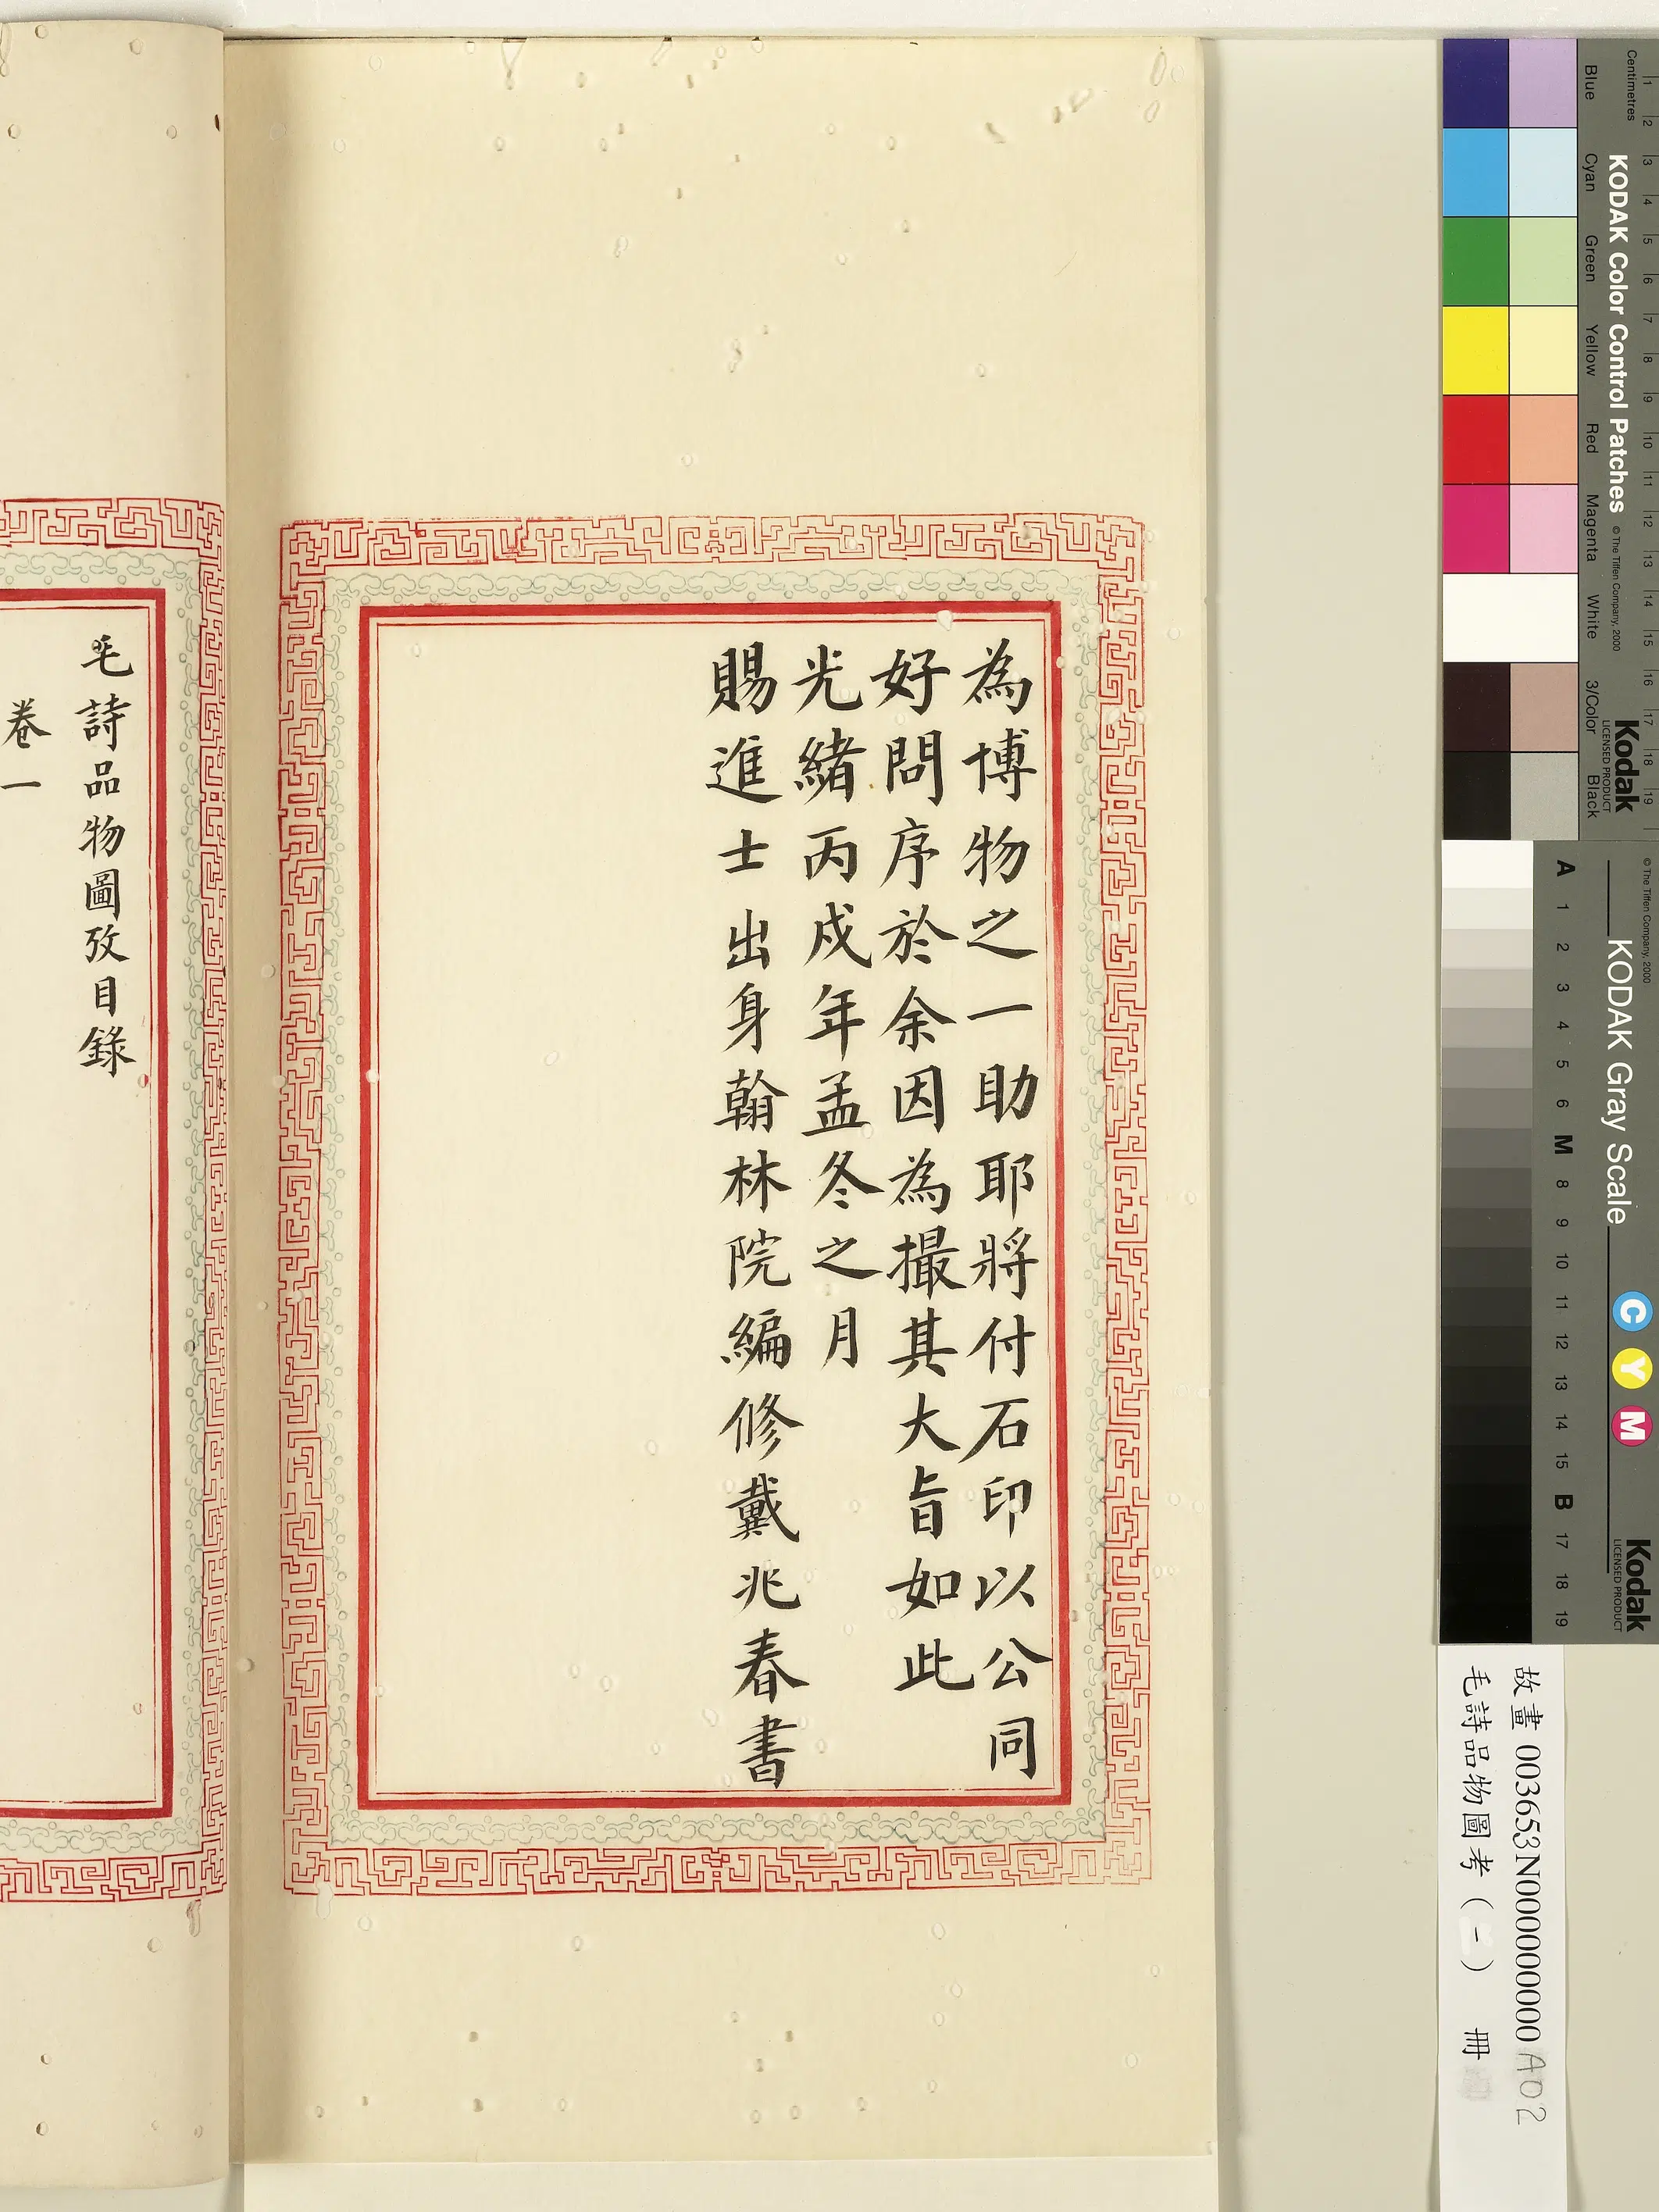 為博物之一助耶將付石印以公同
好問序於余因為撮其大旨如此
光緒丙戌年孟冬之月
賜進士出身翰林院編修戴兆春書
毛詩品物圖攷目錄
卷一
Centimetres
1 2 3 4 5 6 7 8 9 10 11 12 13 14 15 16 17 18 19
KODAK Color Control Patches
© The Tiffen Company, 2000
Kodak
LICENSED PRODUCT
Blue
Cyan
Green
Yellow
Red
Magenta
White
3/Color
Black
© The Tiffen Company, 2000
KODAK Gray Scale
C Y M
Kodak
LICENSED PRODUCT
A 1 2 3 4 5 6 M 8 9 10 11 12 13 14 15 B 17 18 19
故畫 003653N000000000 A02
毛詩品物圖考(一) 冊